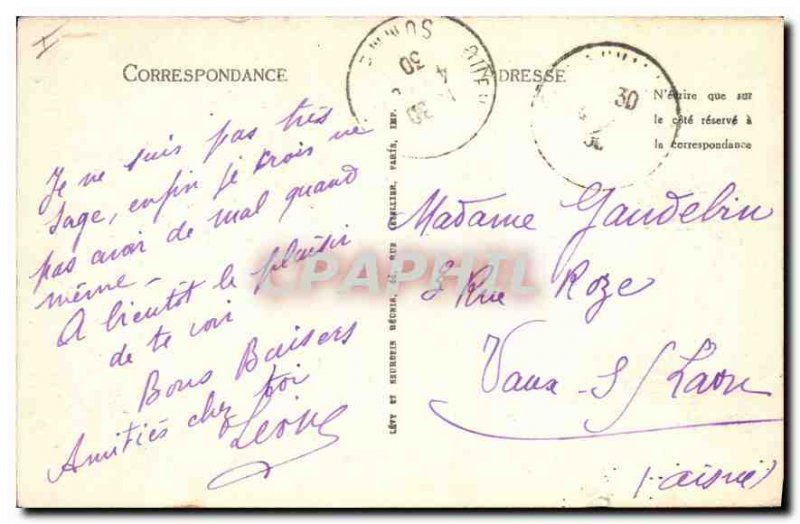 I
CORRESPONDANCE
Je ne suis pas très
sage, enfin je crois ne
pas avoir de mal quand
même –
A bientot le plaisir
de te voir
Bons Baisers
Amitiés chez toi
Léone
LÉVY ET NEURDEIN RÉUNIS, 44, RUE LETELLIER, PARIS, IMP.
30
4
30
ADRESSE
30
N'écrire que sur
le côté réservé à
la correspondance
Madame Gaudebin
8 Rue Roze
Vaux-s/Laon
(aisne)
CPAPHIL